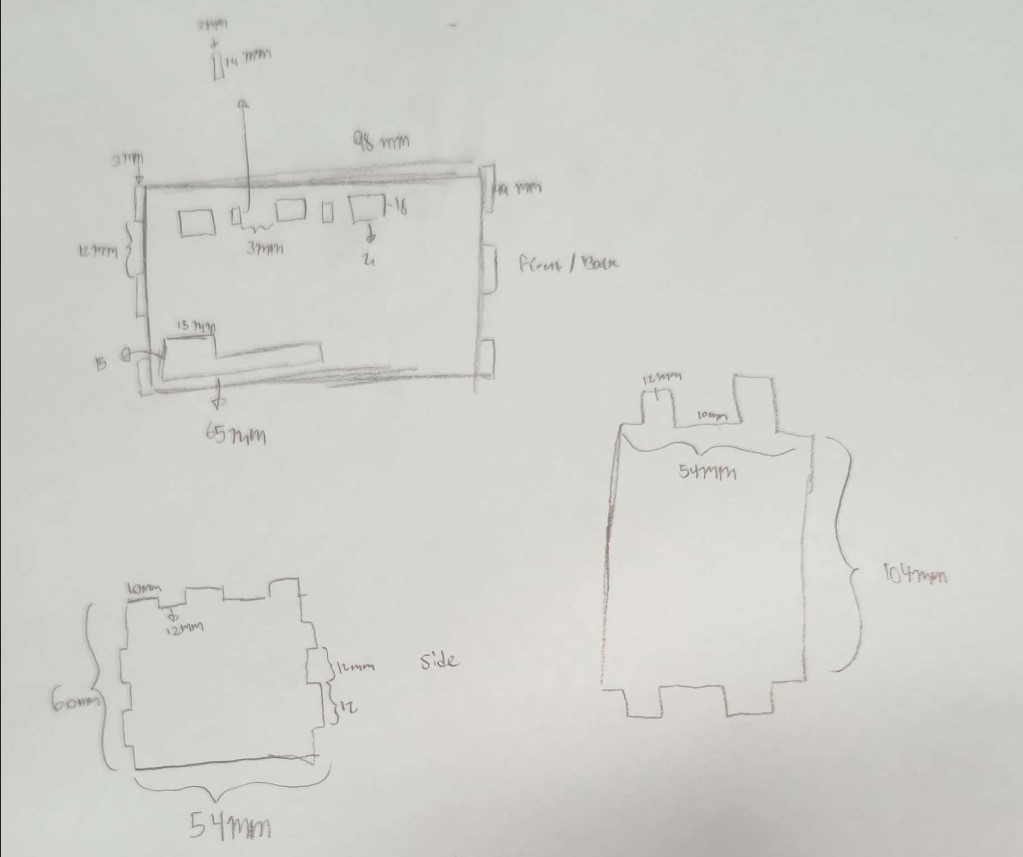 3mm
14 mm
98 mm
3mm
mm
16
12mm
3mm
Front / Back
15 mm
15
65mm
12mm
10mm
54mm
104mm
10mm
12mm
12mm
Side
60mm
12
54mm